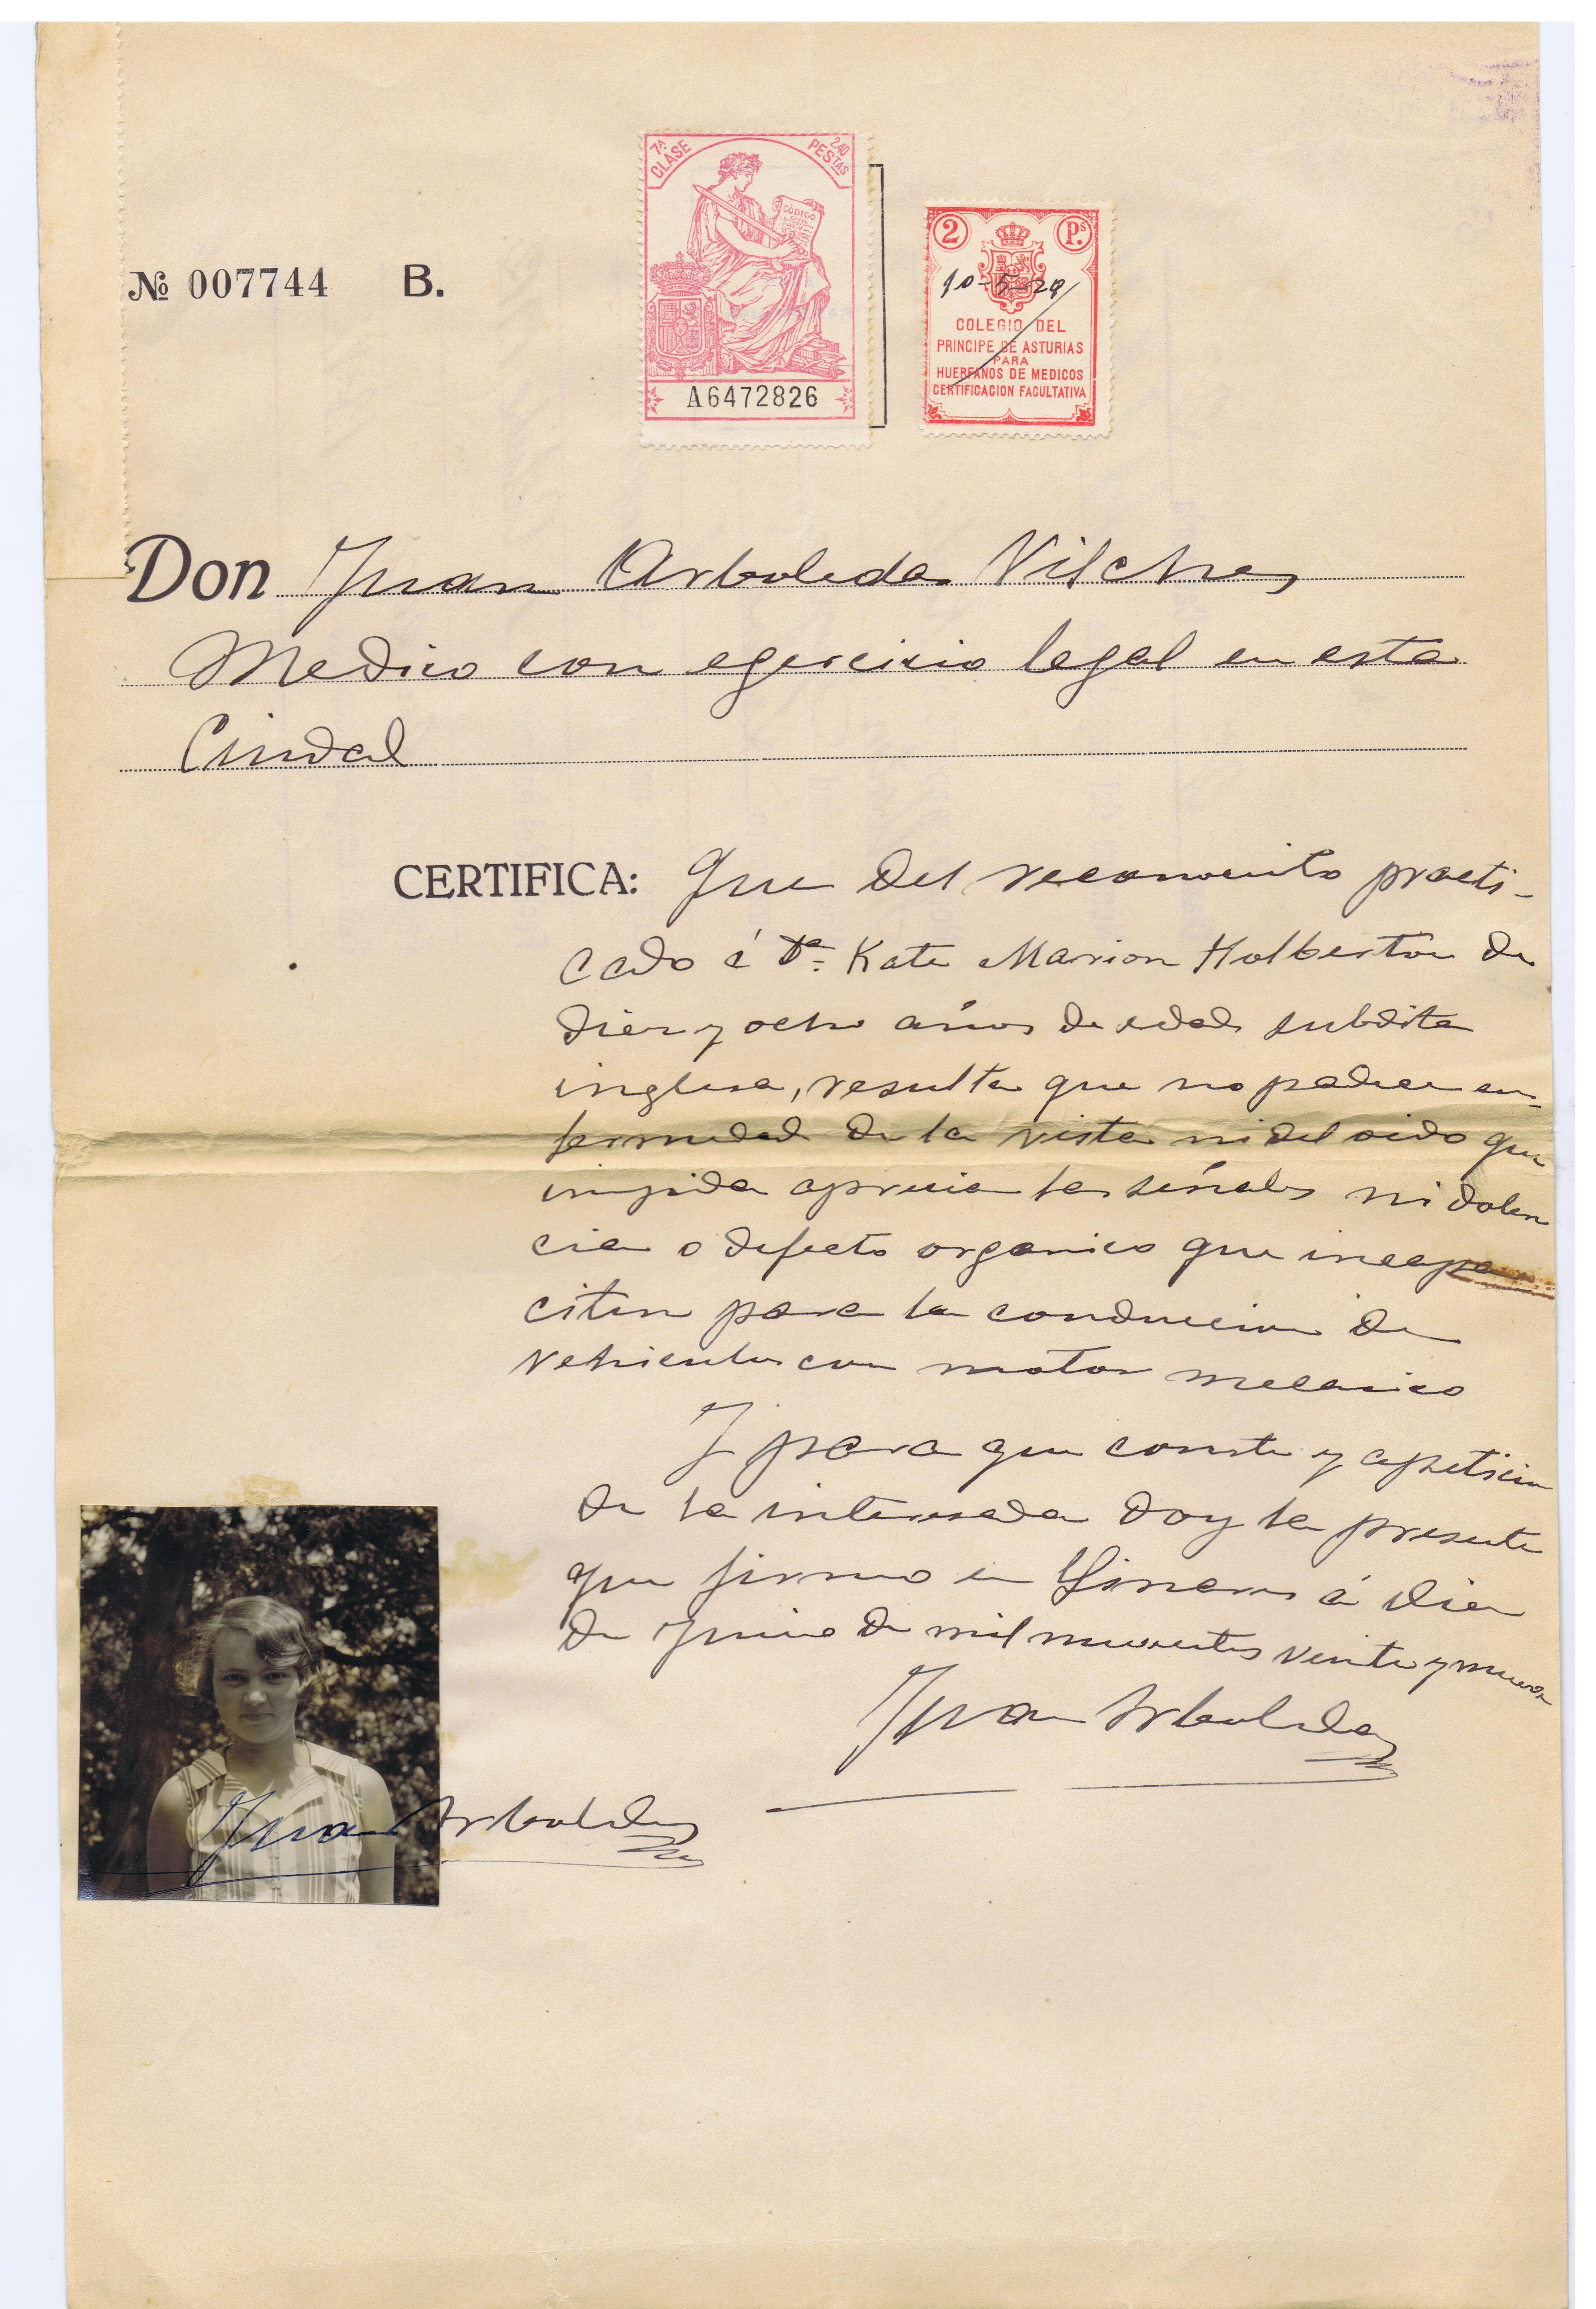 7ª CLASE 2,40 PESTAS
CÓDIGO
A6472826
2 Ps.
10-5-29
COLEGIO DEL
PRINCIPE DE ASTURIAS
PARA
HUERFANOS DE MEDICOS
CERTIFICACION FACULTATIVA
No 007744 B.
Don Juan Arboleda Vilches
Medico con egercicio legal en esta
Ciudad
CERTIFICA: Que del reconocimto practi-
cado á Dª. Kate Marion Holberton de
diez y ocho años de edad subdita
inglesa, resulta que no padece en-
fermedad de la vista ni del oido que
impida apreciar las señales ni dolen
cia o defecto organico que incapa
citen para la conduccion de
vehiculos con motor mecanico
Y para que conste y a peticion
de la interesada doy la presente
que firmo en Linares á diez
de Junio de mil novecientos veinte y nueve
Juan Arboleda
Juan Arboleda